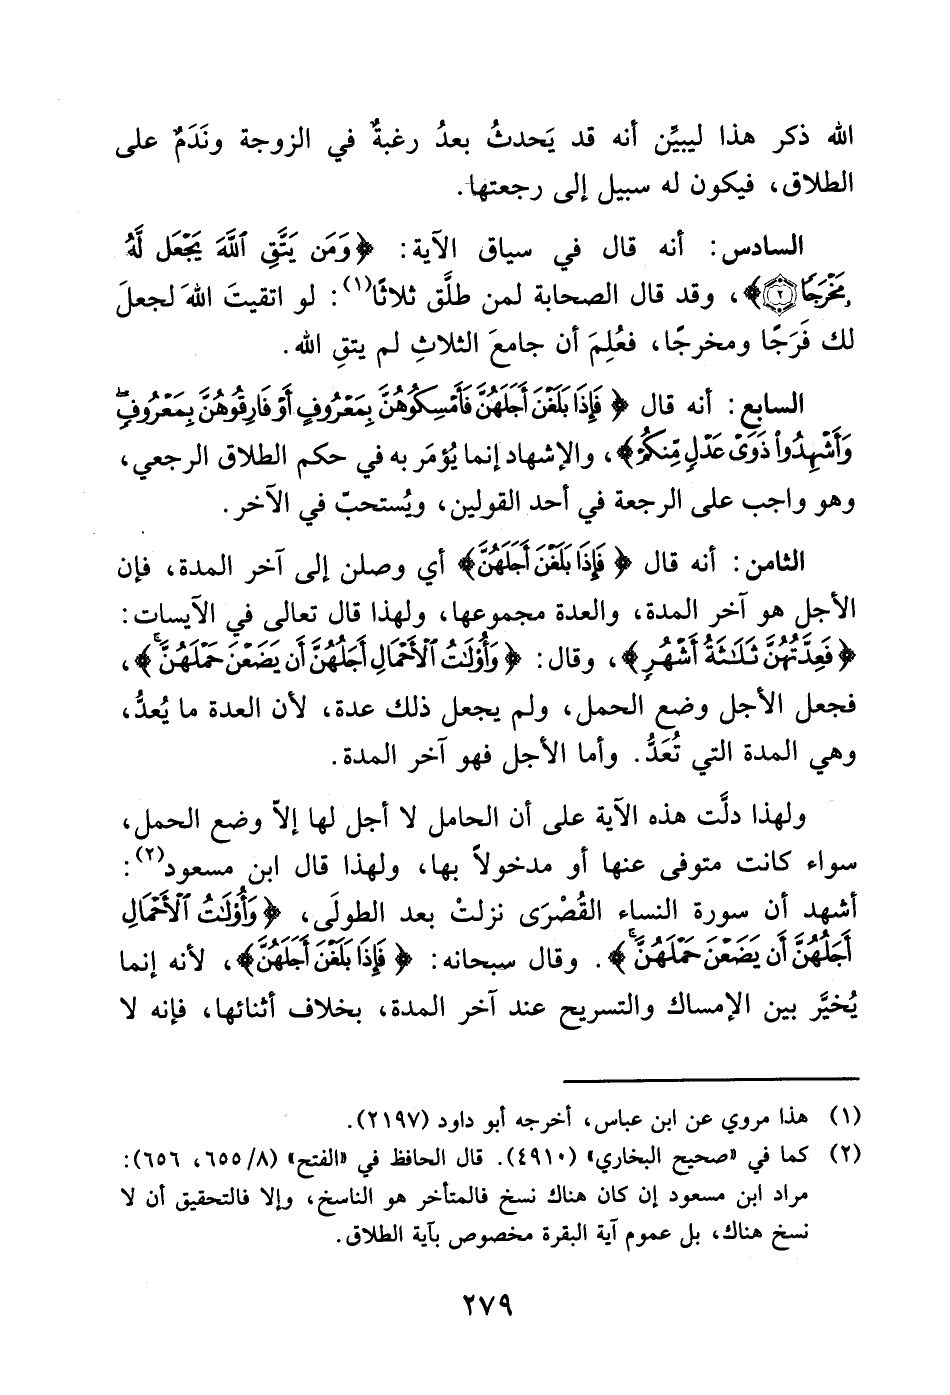 الله ذكر هذا ليبيِّن أنه قد يَحدثُ بعدُ رغبةٌ في الزوجة ونَدَمٌ على
الطلاق، فيكون له سبيل إلى رجعتها.
السادس: أنه قال في سياق الآية: ﴿وَمَن يَتَّقِ ٱللَّهَ يَجْعَل لَّهُۥ
مَخْرَجًا ۝٢﴾، وقد قال الصحابة لمن طلَّق ثلاثًا(١): لو اتقيتَ اللهَ لجعلَ
لك فَرَجًا ومخرجًا، فعُلِمَ أن جامعَ الثلاثِ لم يتقِ الله.
السابع: أنه قال ﴿فَإِذَا بَلَغْنَ أَجَلَهُنَّ فَأَمْسِكُوهُنَّ بِمَعْرُوفٍ أَوْ فَارِقُوهُنَّ بِمَعْرُوفٍۢ
وَأَشْهِدُوا۟ ذَوَىْ عَدْلٍ مِّنكُمْ﴾، والإشهاد إنما يُؤمَر به في حكم الطلاق الرجعي،
وهو واجب على الرجعة في أحد القولين، ويُستحبّ في الآخر.
الثامن: أنه قال ﴿فَإِذَا بَلَغْنَ أَجَلَهُنَّ﴾ أي وصلن إلى آخر المدة، فإن
الأجل هو آخر المدة، والعدة مجموعها، ولهذا قال تعالى في الآيسات:
﴿فَعِدَّتُهُنَّ ثَلَـٰثَةُ أَشْهُرٍ﴾، وقال: ﴿وَأُو۟لَـٰتُ ٱلْأَحْمَالِ أَجَلُهُنَّ أَن يَضَعْنَ حَمْلَهُنَّ ۚ﴾،
فجعل الأجل وضع الحمل، ولم يجعل ذلك عدة، لأن العدة ما يُعدُّ،
وهي المدة التي تُعَدُّ. وأما الأجل فهو آخر المدة.
ولهذا دلَّت هذه الآية على أن الحامل لا أجل لها إلاّ وضع الحمل،
سواء كانت متوفى عنها أو مدخولاً بها، ولهذا قال ابن مسعود(٢):
أشهد أن سورة النساء القُصْرَى نزلتْ بعد الطولَى، ﴿وَأُو۟لَـٰتُ ٱلْأَحْمَالِ
أَجَلُهُنَّ أَن يَضَعْنَ حَمْلَهُنَّ ۚ﴾. وقال سبحانه: ﴿فَإِذَا بَلَغْنَ أَجَلَهُنَّ﴾، لأنه إنما
يُخيَّر بين الإمساك والتسريح عند آخر المدة، بخلاف أثنائها، فإنه لا
(١) هذا مروي عن ابن عباس، أخرجه أبو داود (٢١٩٧).
(٢) كما في «صحيح البخاري» (٤٩١٠). قال الحافظ في «الفتح» (٨/ ٦٥٥، ٦٥٦):
مراد ابن مسعود إن كان هناك نسخ فالمتأخر هو الناسخ، وإلا فالتحقيق أن لا
نسخ هناك، بل عموم آية البقرة مخصوص بآية الطلاق.
٢٧٩